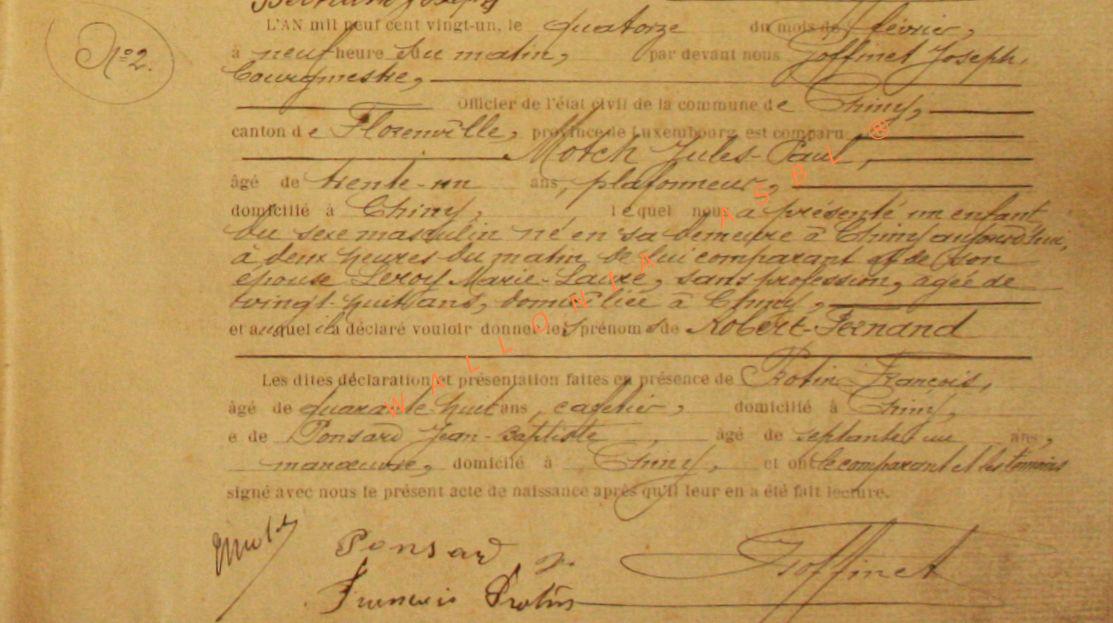 L'AN mil neuf cent vingt-un, le quatorze du mois de février,
N° 2.
à neuf heure du matin, par devant nous Goffinet Joseph,
bourgmestre,
Officier de l'état civil de la commune de Chiny,
canton de Florenville, province de Luxembourg est comparu
Motch Jules-Paul,
âgé de trente-un ans, plafonneur,
domicilié à Chiny, lequel nous a présenté un enfant
du sexe masculin né en sa demeure à Chiny aujourd'hui,
à deux heures du matin, de lui comparant et de son
épouse Leroy Marie-Laure, sans profession, agée de
vingt-huit ans, domiciliée à Chiny,
et auquel il a déclaré vouloir donner les prénoms de Robert-Fernand
Les dites déclaration et présentation faites en présence de Protin François,
âgé de quarante-huit ans, cafetier, domicilié à Chiny,
e de Ponsard Jean-Baptiste, âgé de septante un ans,
manœuvre, domicilié à Chiny, et ont le comparant et les témoins
signé avec nous le présent acte de naissance après qu'il leur en a été fait lecture.
Ponsard
François Protin
Goffinet
WALLONIA ASBL